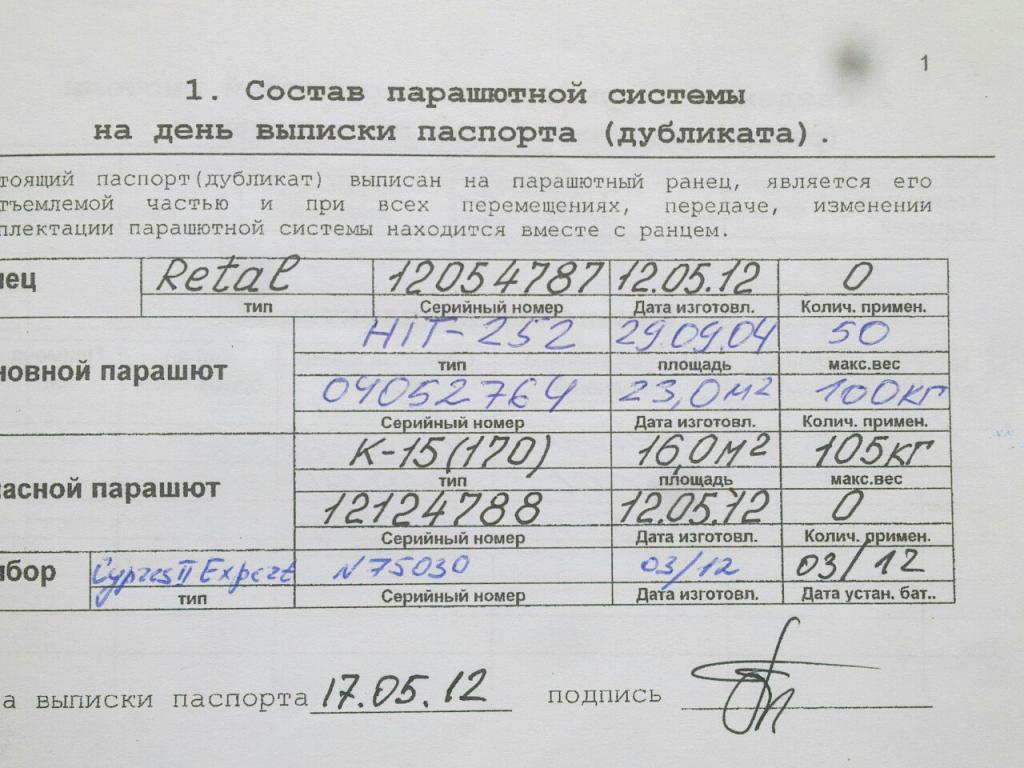 1
1. Состав парашютной системы
на день выписки паспорта (дубликата).
тоящий паспорт(дубликат) выписан на парашютный ранец, является его
тъемлемой частью и при всех перемещениях, передаче, изменении
плектации парашютной системы находится вместе с ранцем.
нец Retal 12054787 12.05.12 0
тип Серийный номер Дата изготовл. Колич. примен.
HIT-252 29.09.04 50
новной парашют тип площадь макс.вес
04052764 23,0м2 100кг
Серийный номер Дата изготовл. Колич. примен.
К-15(170) 16,0м2 105кг
асной парашют тип площадь макс.вес
12124788 12.05.12 0
Серийный номер Дата изготовл. Колич. примен.
ибор Cypres II Expert N75030 03/12 03/12
тип Серийный номер Дата изготовл. Дата устан. бат..
а выписки паспорта 17.05.12 подпись